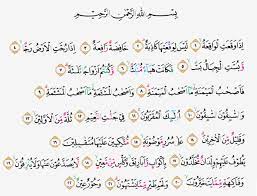 بِسْمِ اللَّهِ الرَّحْمَٰنِ الرَّحِيمِ
إِذَا وَقَعَتِ الْوَاقِعَةُ ١ لَيْسَ لِوَقْعَتِهَا كَاذِبَةٌ ٢ خَافِضَةٌ رَافِعَةٌ ٣ إِذَا رُجَّتِ الْأَرْضُ رَجًّا ٤
وَبُسَّتِ الْجِبَالُ بَسًّا ٥ فَكَانَتْ هَبَاءً مُنْبَثًّا ٦ وَكُنْتُمْ أَزْوَاجًا ثَلَاثَةً ٧
فَأَصْحَابُ الْمَيْمَنَةِ مَا أَصْحَابُ الْمَيْمَنَةِ ٨ وَأَصْحَابُ الْمَشْأَمَةِ مَا أَصْحَابُ الْمَشْأَمَةِ ٩
وَالسَّابِقُونَ السَّابِقُونَ ١٠ أُولَٰئِكَ الْمُقَرَّبُونَ ١١ فِي جَنَّاتِ النَّعِيمِ ١٢ ثُلَّةٌ مِنَ الْأَوَّلِينَ ١٣
وَقَلِيلٌ مِنَ الْآخِرِينَ ١٤ عَلَىٰ سُرُرٍ مَوْضُونَةٍ ١٥ مُتَّكِئِينَ عَلَيْهَا مُتَقَابِلِينَ ١٦
يَطُوفُ عَلَيْهِمْ وِلْدَانٌ مُخَلَّدُونَ ١٧ بِأَكْوَابٍ وَأَبَارِيقَ وَكَأْسٍ مِنْ مَعِينٍ ١٨ لَا يُصَدَّعُونَ عَنْهَا وَلَا يُنْزِفُونَ ١٩
وَفَاكِهَةٍ مِمَّا يَتَخَيَّرُونَ ٢٠ وَلَحْمِ طَيْرٍ مِمَّا يَشْتَهُونَ ٢١ وَحُورٌ عِينٌ ٢٢